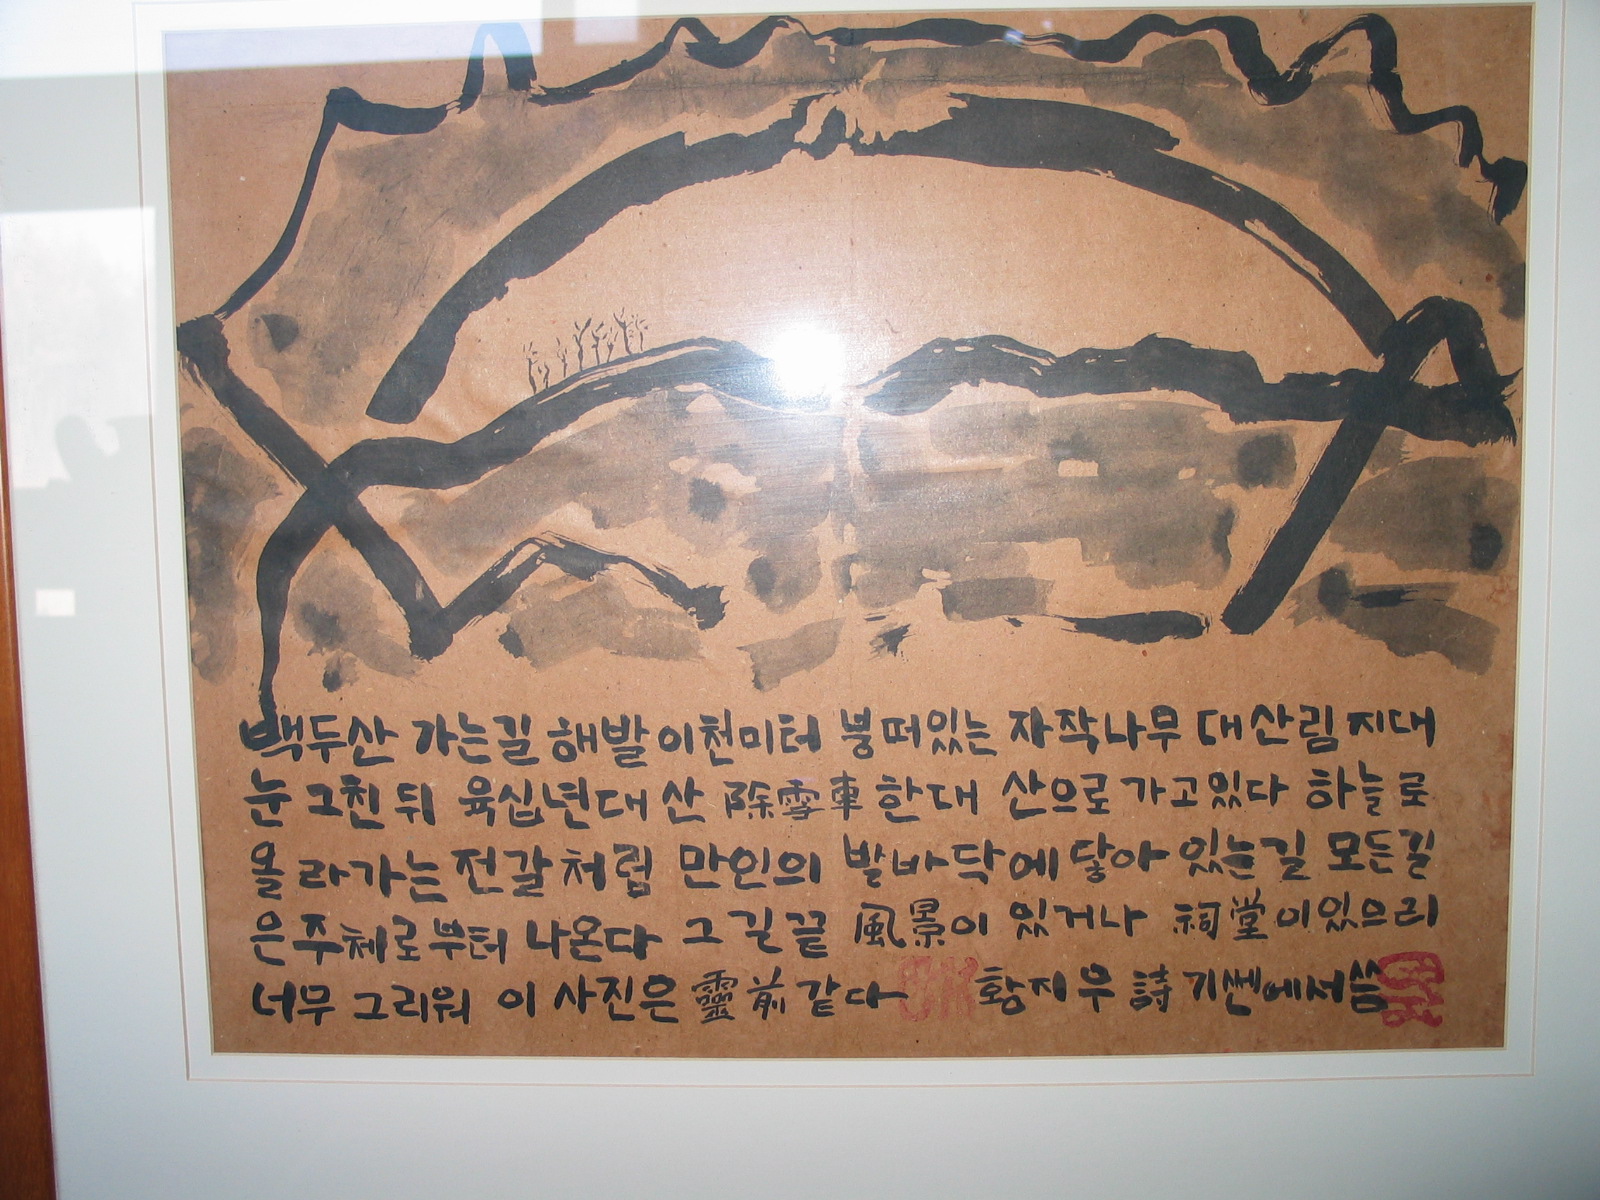 백두산 가는길 해발이천미터 붕떠있는 자작나무 대산림지대
눈 그친 뒤 육십년대 산 除雪車 한대 산으로 가고있다 하늘로
올라가는 전갈처럼 만인의 발바닥에 닿아 있는길 모든길
은 주체로부터 나온다 그 길끝 風景이 있거나 祠堂이있으리
너무 그리워 이 사진은 靈前같다 황지우 詩 기쎈에서 씀